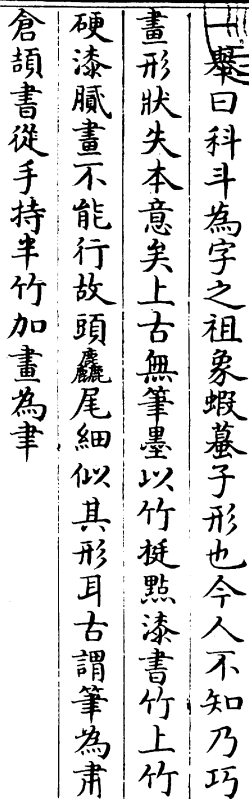 一舉曰科斗為字之祖象蝦蟇子形也今人不知乃巧
畫形狀失本意矣上古無筆墨以竹梃點漆書竹上竹
硬漆膩畫不能行故頭麤尾細似其形耳古謂筆為肃
倉頡書從手持半竹加畫為聿